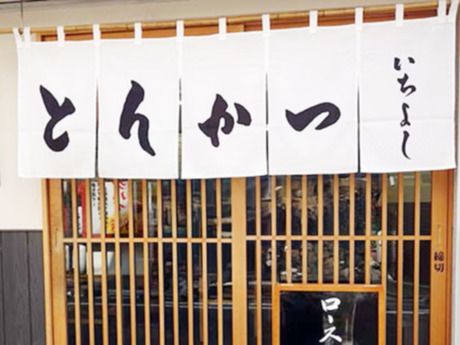 とんかつ
いちよし
締切
ロース